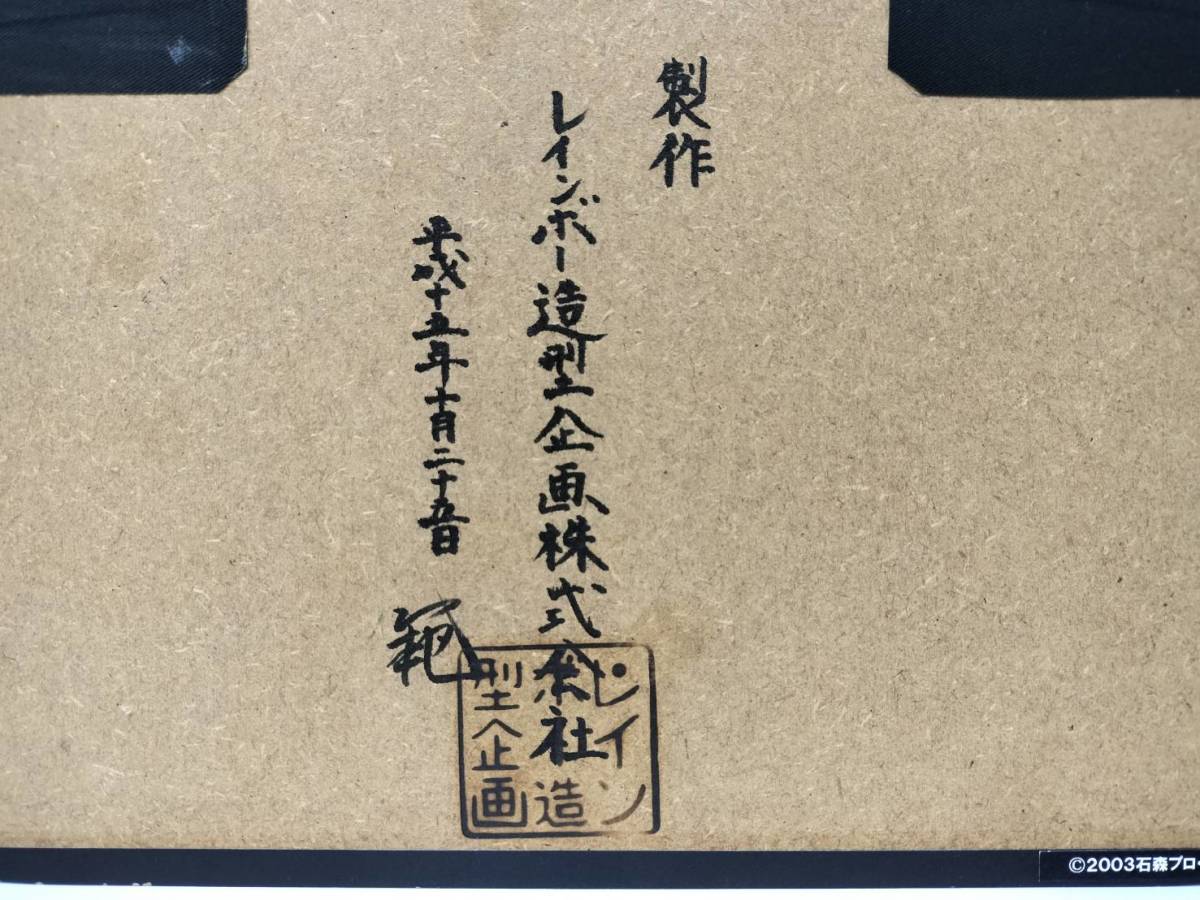 製作
レインボー造型企画株式会社
平成十五年十月二十五日
範
レイン
ボー造
型企画
©2003石森プロ・